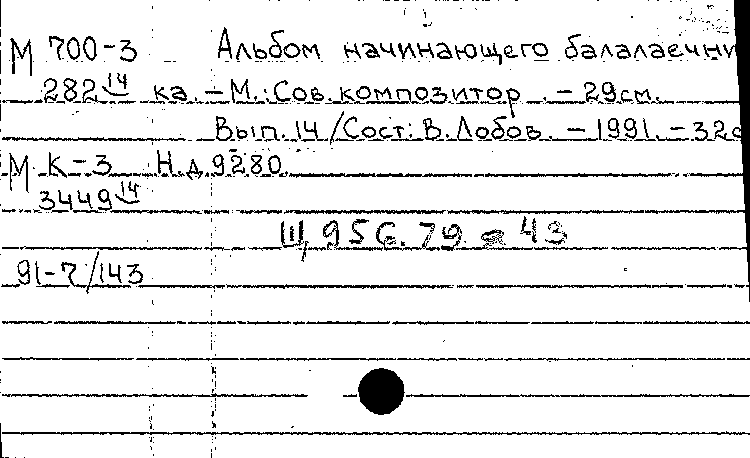 М 700-3 Альбом начинающего балалаечни
282 14 ка. – М.: Сов. композитор. – 29см.
Вып. 14 / Сост: В. Лобов. – 1991. – 32с
М К-3 Н.д. 9280.
3449 14
Щ 956.79 я 43
91-7/143